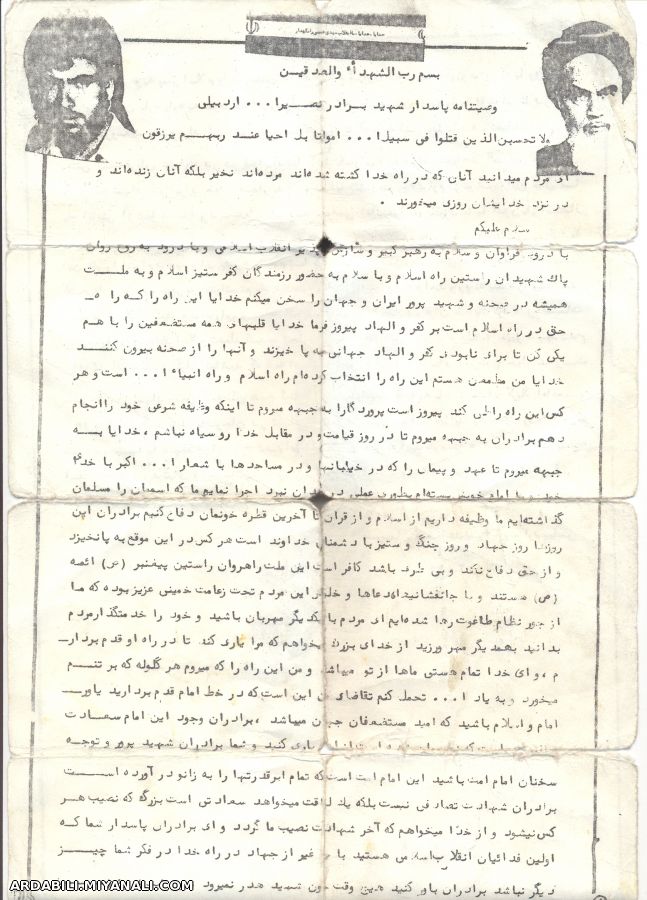 خدایا، خدایا، تا انقلاب مهدی خمینی را نگهدار
بسم رب الشهدأ والصدقیـن
وصیتنامه پاسدار شهید بـرادر نصـیرا... اردبیلی
ولا تحسبن الذین قتلوا فی سبیل ا... امواتا بل احیا عنـد ربهـم یرزقون
ای مردم میدانید آنان که در راه خدا کشته شده‌اند مرده‌اند نخیر بلکه آنان زنده‌اند و
در نزد خدایشان روزی میخورند .
سلام علیکم
با درود فراوان و سلام به رهبر کبیر و انقلاب اسلامی و با درود به روح روان
پاك شهیدان راستین راه اسلام و با سلام به حضور رزمندگان کفر ستیز اسلام و به ملـــت
همیشه در صحنه و شهید پرور ایران و جهان را سخن میکنم خدایا این راه را کـه را ه
حق در راه اسلام است بر کفر و الهاد پیروز فرما خدایا قلبهای همه مستضعفین را با هـم
یکی کن تا برای نابودی کفر و الهاد جهانی به پا خیزند و آنها را از صحنه بیرون کننــد
خدایا من مطمعن هستم این راه را انتخاب کرده‌ام راه اسلام و راه انبیاء ا... است و هر
کس این راه را طی کند پیروز است پروردگارا به جبهه میروم تا اینکه وظیفه شرعی خود را انجام
دهم برادران به جبهه میروم تا در روز قیامت و در مقابل خدا رو سیاه نباشم ، خدایا بــه
جبهه میروم تا عهد و پیمان را که در خیابانها و در مساجدها با شعار ا... اکبر با خدای
خود و با امام خویش بسته‌ام بطوری عملی در میدان نبرد اجرا نمایم ما که اسممان را مسلمان
گذاشته‌ایم ما وظیفه داریم از اسلام و از قران تا آخرین قطره خونمان دفاع کنیم برادران این
روزها روز جهاد و روز جنگ و ستیز با دشمنان خداوند است هر کس در این موقع به پا نخیزد
و از حق دفاع نکند و بی طرف باشد کافر است این ملت راهروان راستین پیغمبر (ص) ائمه
(ص) هستند و با جانفشانیهای دعاها و این مردم تحت زعامت خمینی عزیز بوده که مـا
از جور نظام طاغوت رها شده‌ایم ای مردم با یکدیگر مهربان باشید و خود را خدمتگذار مردم
بدانید بهمدیگر مهر ورزید از خدای بزرگ میخواهم که مرا یاری کند تا در راه او قدم بردارـ
م ، و ای خدا تمام هستی ماها از تو میباشد و من این راه را که میروم هر گلوله که بر تنـــم
میخورد و به یاد ا... تحمل کنم تقاضای من این است که در خط امام قدم بردارید یاورــ
امام و اسلام باشید که امید مستضعفان جهان میباشد ، برادران وجود این امام سعـادت
یاری کنید و شما برادران شهید پرور و توجـه
سخنان امام امت باشید این امام امت است که تمام ابرقدرتها را به زانو در آورده اســـت
برادران شهادت تصادفی نیست بلکه یك لیاقت میخواهد سعادتی است بزرگ که نصیب هــر
کس نیشود و از خدا میخواهم که آخر شهادت نصیب ما گردد و ای برادران پاسدار شما کــه
اولین فدائیان انقلاب اسلامی هستید با غیر از جهاد در راه خدا در فکر شما چیـــز
دیگر نباشد برادران باور کنید هیچ وقت خون شهید هدر نمیرود
ARDABILI.MIYANALI.COM